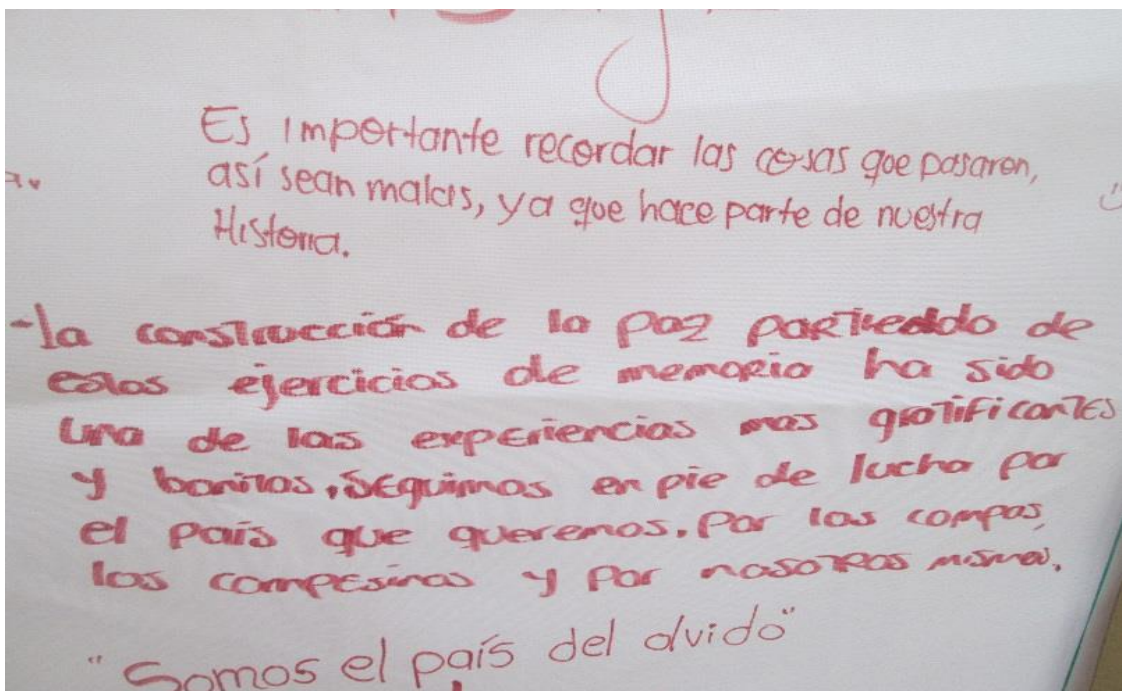 Es importante recordar las cosas que pasaron,
así sean malas, ya que hace parte de nuestra
Historia.
-la construcción de la paz partiendo de
estos ejercicios de memoria ha sido
una de las experiencias mas gratificantes
y bonitas, seguimos en pie de lucha por
el país que queremos. Por los compas,
los campesinos y por nosotros mismos.
"Somos el país del olvido"